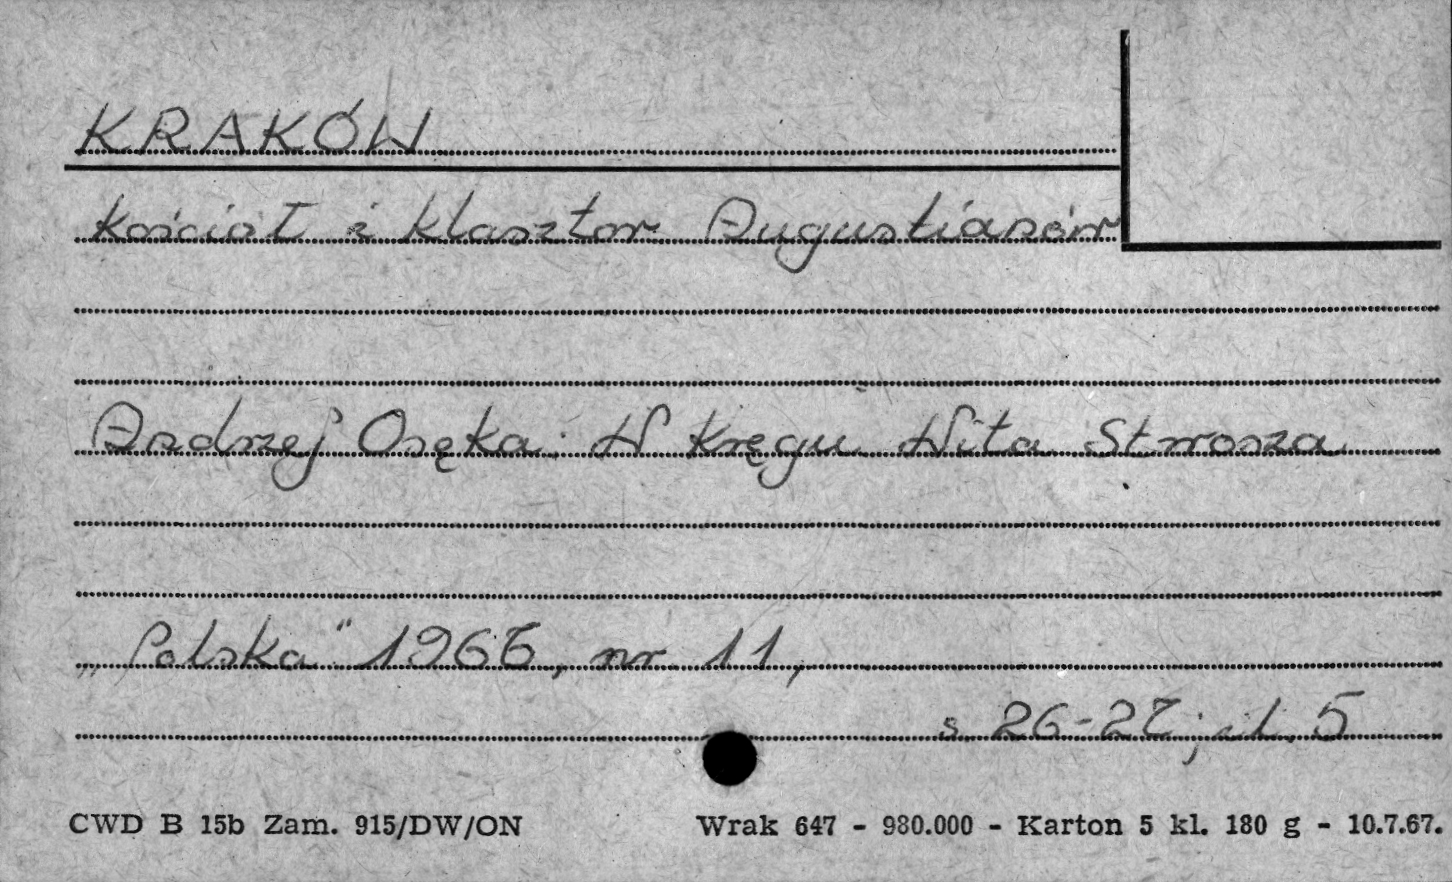 KRAKÓW
kościół i klasztor Augustianów
Andrzej Osęka: W kręgu Wita Stwosza
„Polska" 1966, nr 11,
s. 26-27; il. 5
CWD B 15b Zam. 915/DW/ON Wrak 647 - 980.000 - Karton 5 kl. 180 g - 10.7.67.